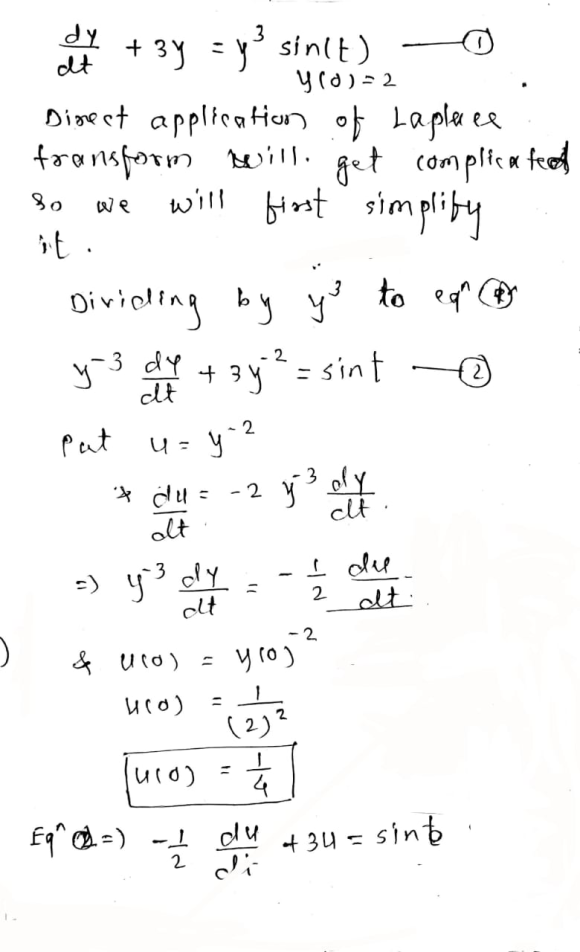 dy/dt + 3y = y³ sin(t) —— ①
y(0) = 2
Direct application of Laplace
transform will. get complicated
so we will first simplify
it.
Dividing by y³ to eqⁿ ①
y⁻³ dy/dt + 3y⁻² = sint —— ②
put u = y⁻²
du/dt = -2 y⁻³ dy/dt.
=> y⁻³ dy/dt = -1/2 du/dt.
& u(0) = y(0)⁻²
u(0) = 1/(2)²
u(0) = 1/4
Eqⁿ ② => -1/2 du/dt + 3u = sint